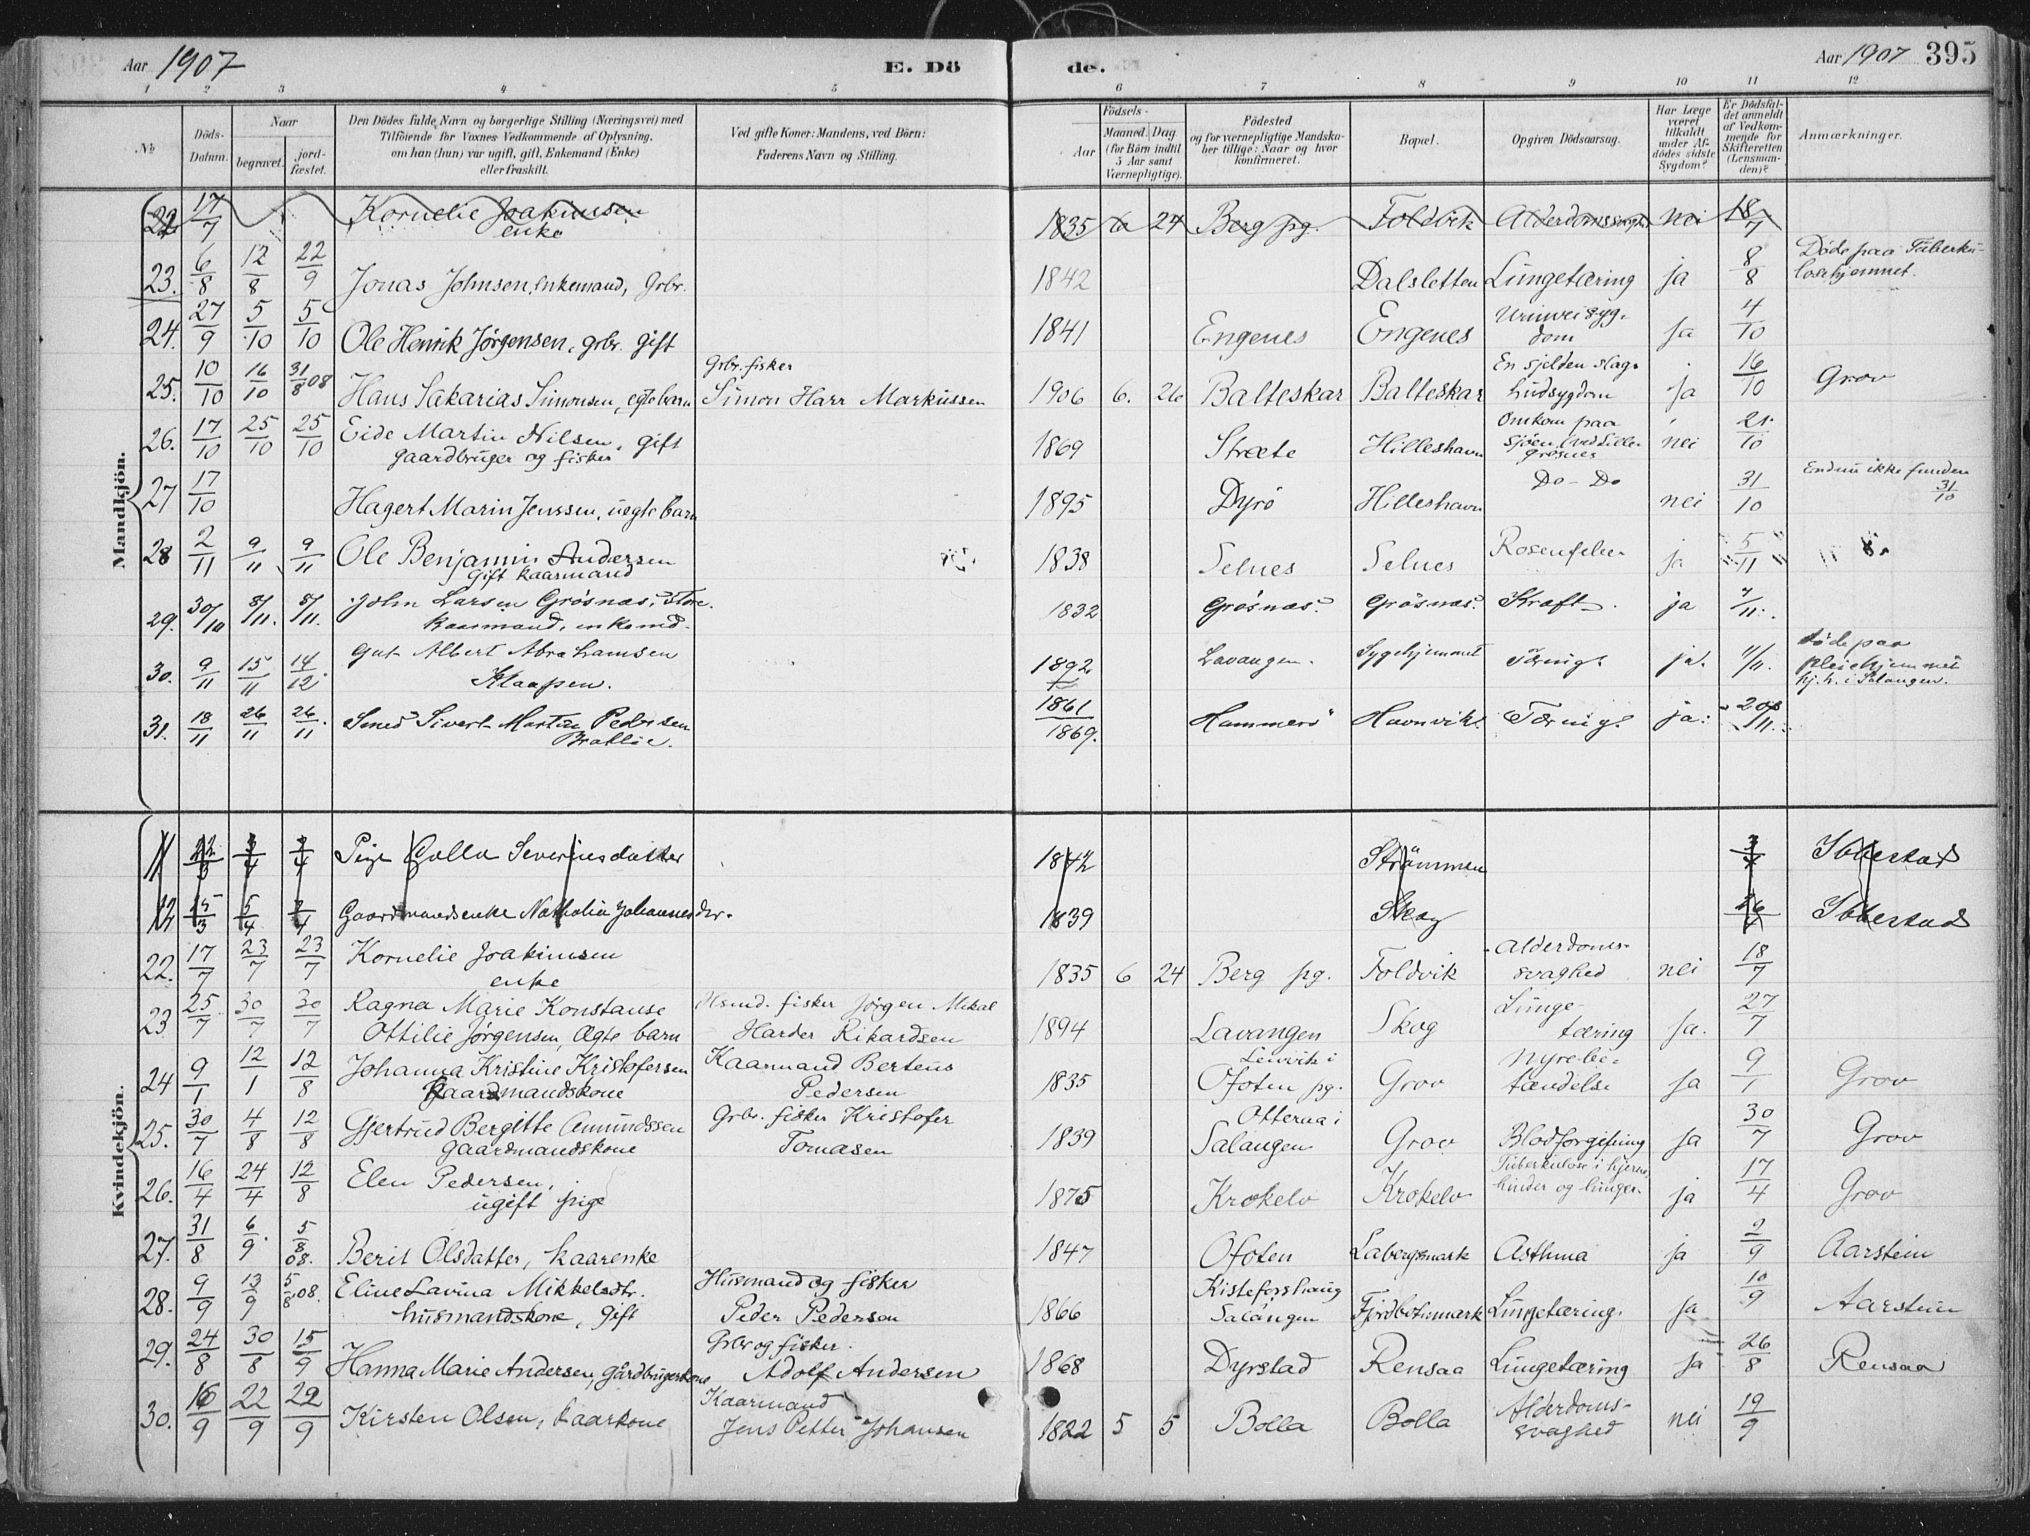 Aar 1907 E. Dö de. Aar 1907 395
1 2 3 4 5 6 7 8 9 10 11 12
No Döds-Datum. Naar begravet. jordfæstet. Den Dödes fulde Navn og borgerlige Stilling (Næringsvei) med Tilföiende for Voxnes Vedkommende af Oplysning, om han (hun) var ugift, gift, Enkemand (Enke) eller fraskilt. Ved gifte Koner: Mandens, ved Börn: Faderens Navn og Stilling. Födsels- Aar Maaned Dag (for Börn indtil 5 Aar samt Værnepligtige). Födested og for værnepligtige Mandskaber tillige: Naar og hvor konfirmeret. Bopæl. Opgiven Dödsaarsag. Har Læge været tilkaldt under Afdödes sidste Sygdom? Er Dödsfaldet anmeldt af Vedkommende for Skifteretten (Lensmanden)? Anmærkninger.
Mandkjön.
22 17/7 Kornelie Joakimsen enke 1835 6 24 Berg pg. Foldvik Alderdomssvaghed nei 18/7
23. 6/8 12/8 22/9 Jonas Johnsen, Enkemand, Grbr. 1842 Dalsletten Lungetæring ja 8/8 Döde paa Tuberkulosehjemmet.
24. 27/9 5/10 5/10 Ole Henrik Jörgensen, grbr. gift 1841 Engenes Engenes Urinveisygdom Ja 4/10
25. 10/10 16/10 31/8 08 Hans Sakarias Simonsen, egte barn Grbr. fisker Simon Harr Markussen 1906 6. 26 Balteskar Balteskar En sjelden slags hudsygdom Ja 16/10 Grov
26. 17/10 25/10 25/10 Eide Martin Nilsen, gift gaardbruger og fisker 1869 Stræte Hilleshavn Omkom paa sjöen (ved Lille Grösnes nei 21/10
27 17/10 Hagert Marin Jenssen, uegte barn 1895 Dyrö Hilleshavn Do - Do nei 31/10 Endnu ikke funden 31/10
28 2/11 9/11 9/11 Ole Benjamin Andersen gift kaarmand 1838 Selnes Selnes Rosenfeber ja 5/11
29. 30/10 8/11. 8/11. John Larsen Grösnas, Store. kaarmand, enkemd. 1832 Grösnas. Grösnas. Kræft. ja 7/11.
30. 9/11 15/11 14/12 Gut Albert Abrahamsen Klaapen. 1892 Lavangen. Sygehjemmet Tæring. ja. 11/11. döde paa pleiehjemmet hj.h. i Salangen.
31. 18/11 26/11 26/11 Smed Sivert Martin Pedersen Bratlie. 1861 1869. Hammerö Havnvik. Tæring. ja. 20/11.
Kvindekjön.
11 22/3 3/4 3/4 Pige Golla Severinsdatter 1842 Strömmen 3/4 Ibbestad
12 15/3 5/4 Gaardmandsenke Nathalia Johannesdtr. 1839 Skog Ibbestad
22. 17/7 23/7 23/7 Kornelie Joakimsen enke 1835 6 24 Berg pg. Foldvik Alderdomssvaghed nei 18/7
23 25/7 30/7 30/7 Ragna Marie Konstanse Ottilie Jørgensen, Ægte barn Hsmd. fisker Jørgen Mikal Harder Rikardsen 1894 Lavangen Skog Lungetæring Ja. 27/7
24 9/1 12/1 12/8 Johanna Kristine Kristofersen Kaarmandskone Kaarmand Berteus Pedersen 1835 Leirvik i Ofoten pg. Grov Nyrebetændelse Ja 9/1 Grov
25. 30/7 4/8 12/8 Gjertrud Bergitte Amundssen Gaardmandskone Grbr. fisker Kristofer Tomasen 1839 Otteraa i Salangen Grov Blodforgifning Ja 30/7 Grov
26. 16/4 24/4 12/8 Elen Pedersen, ugift pige 1875 Krokelv Krokelv Tuberkulose i hjernehinder og lunger. ja 17/4 Grov
27. 31/8 6/9 5/8 08. Berit Olsdatter, kaarenke 1847 Ofoten Labergsmark Asthma ja 2/9 Aarstein
28. 9/9 13/9 5/8 08. Eline Lavina Mikkelsdtr. husmandskone, gift Husmand og fisker Peder Pedersen 1866 Kisteforshaug Salangen Fjordbotnmark Lungetæring. Ja 10/9 Aarstein
29. 24/8 30/8 15/9 Hanna Marie Andersen, gårdbrugerkone Grbr og fisker. Adolf Andersen 1868 Dyrstad Rensaa Lungetæring Ja 26/8 Rensaa
30. 16/9 22/9 22/9 Kirsten Olsen, kaarkone Kaarmand Jens Petter Johansen 1822 5 5 Bolla Bolla Alderdomssvaghed nei 19/9